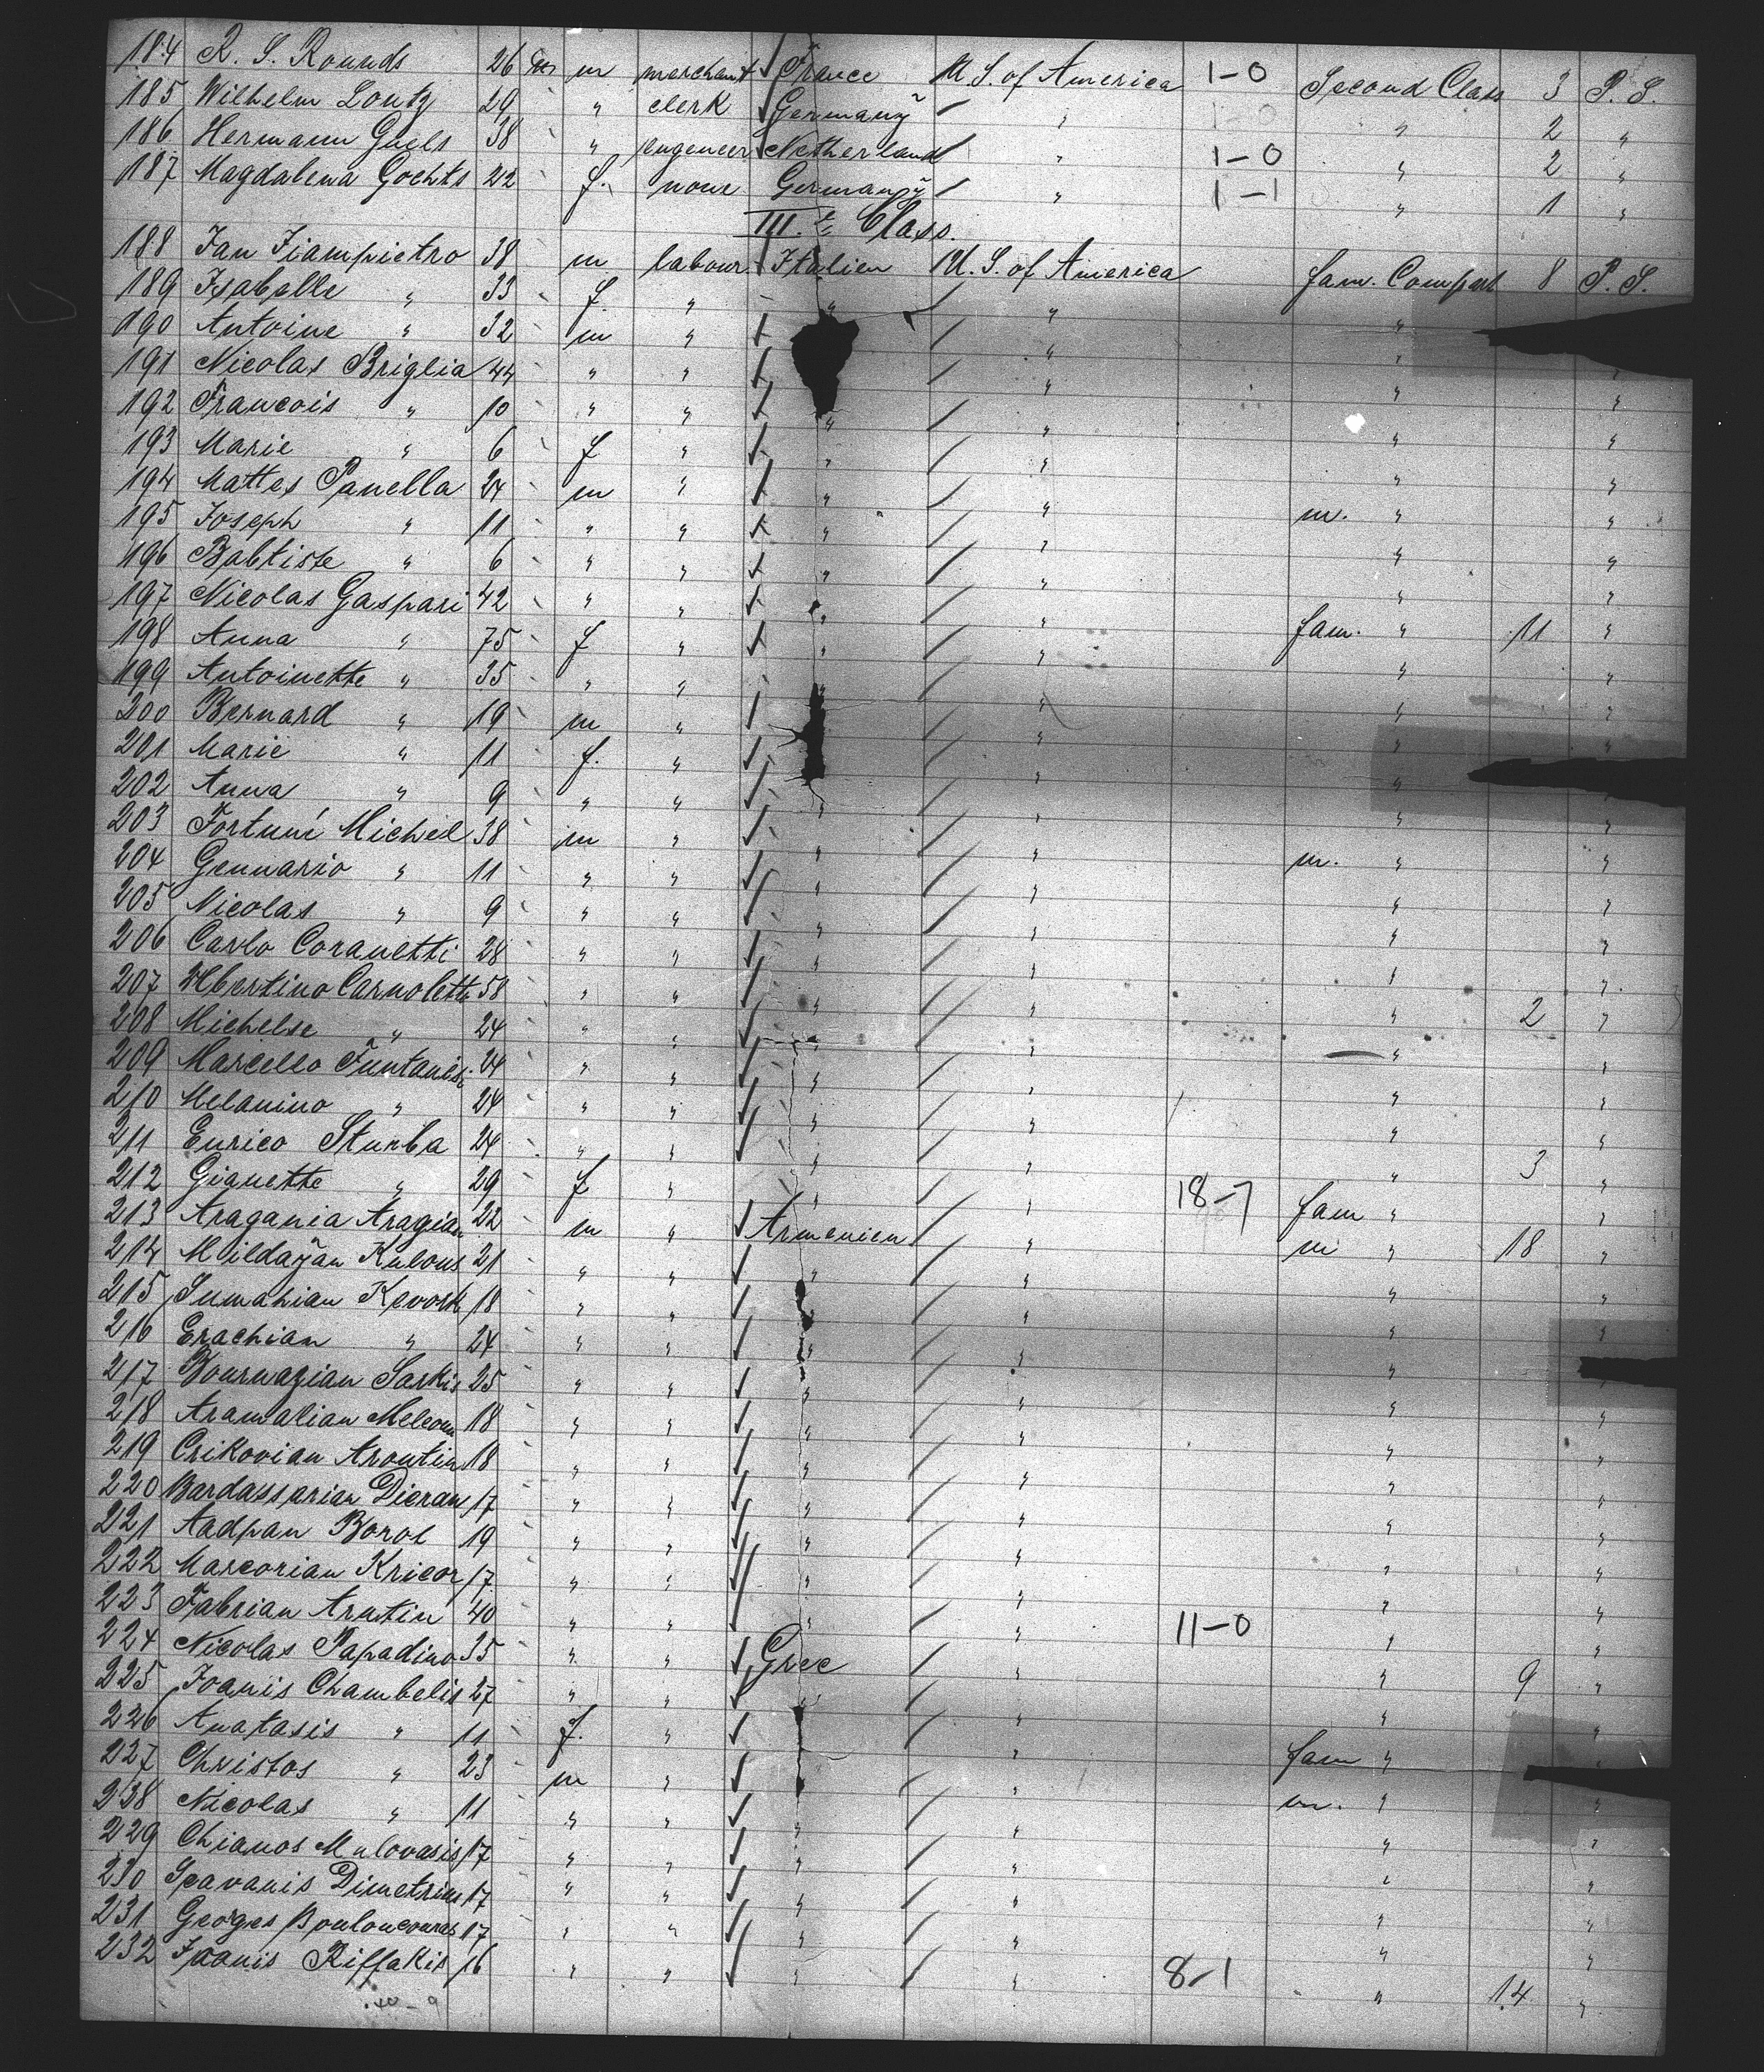 184 R. S. Rounds 26 m merchant France U.S. of America 1-0 Second Class 3 P. S.
185 Wilhelm Loutz 29 " clerk Germany " " 2 "
186 Hermann Guels 38 " engeneer Netherland " 1-0 " 2 "
187 Magdalena Gochts 22 f. none Germany " 1-1 " 1 "
III.t Class.
188 Jan Jiampietro 38 m labour. Italien U.S. of America fam. Compart 8 P. S.
189 Isabelle " 33 f. " " " "
190 Antoine " 32 m " " "
191 Nicolas Briglia 44 " " " " "
192 Francois " 10 " " " " " "
193 Marie " 6 f " " " " "
194 Mattes Panella 24 m " " " m. " "
195 Joseph " 11 " " " " " "
196 Babtiste " 6 " " " " " "
197 Nicolas Gaspari 42 " " " " fam. " 11 "
198 Anna " 75 f " " " " "
199 Antoinette " 35 " " " " " "
200 Bernard " 19 m " " " "
201 Marie " 11 f. " " " "
202 Anna " 9 " " " " " "
203 Fortuni Michel 38 m " " " m. " "
204 Gennario " 11 " " " " " "
205 Nicolas " 9 " " " " " "
206 Carlo Coranetti 28 " " " " " "
207 Albertino Carnoletti 58 " " " " " 2 "
208 Michelse " 24 " " " " " "
209 Marcello Funtanisi 24 " " " " " "
210 Melanino " 24 " " " " " "
211 Enrico Sturba 24 " " " " " 3 "
212 Gianette " 29 f " " " 18-7 fam " "
213 Aragania Aragian 22 m " Armenien " m " 18 "
214 Mildayan Kulous 21 " " " " " "
215 Sumahian Kevork 18 " " " " "
216 Erachian " 24 " " " " "
217 Bourwazian Sarkis 25 " " " " " "
218 Aramalian Meleoun 18 " " " " " "
219 Crikovian Aroutin 18 " " " " " "
220 Bardassarian Dicran 17 " " " " " "
221 Aadpan Borol 19 " " " " " "
222 Marcorian Kricor 17 " " " " " "
223 Fabrian Arutin 40 " " " " 11-0 " "
224 Nicolas Papadino 35 " " Grec " " 9 "
225 Joanis Chambelis 27 " " " " " "
226 Anatasis " 11 f. " " fam "
227 Christos " 23 m " " m. " "
238 Nicolas " 11 " " " " " "
229 Chianos Mulovasis 17 " " " " " "
230 Spavanis Dimetrius 17 " " " " " "
231 Georges Bouloucouras 17 " " " " " "
232 Joanis Riffakis 16 " " " " 8-1 " 14 "